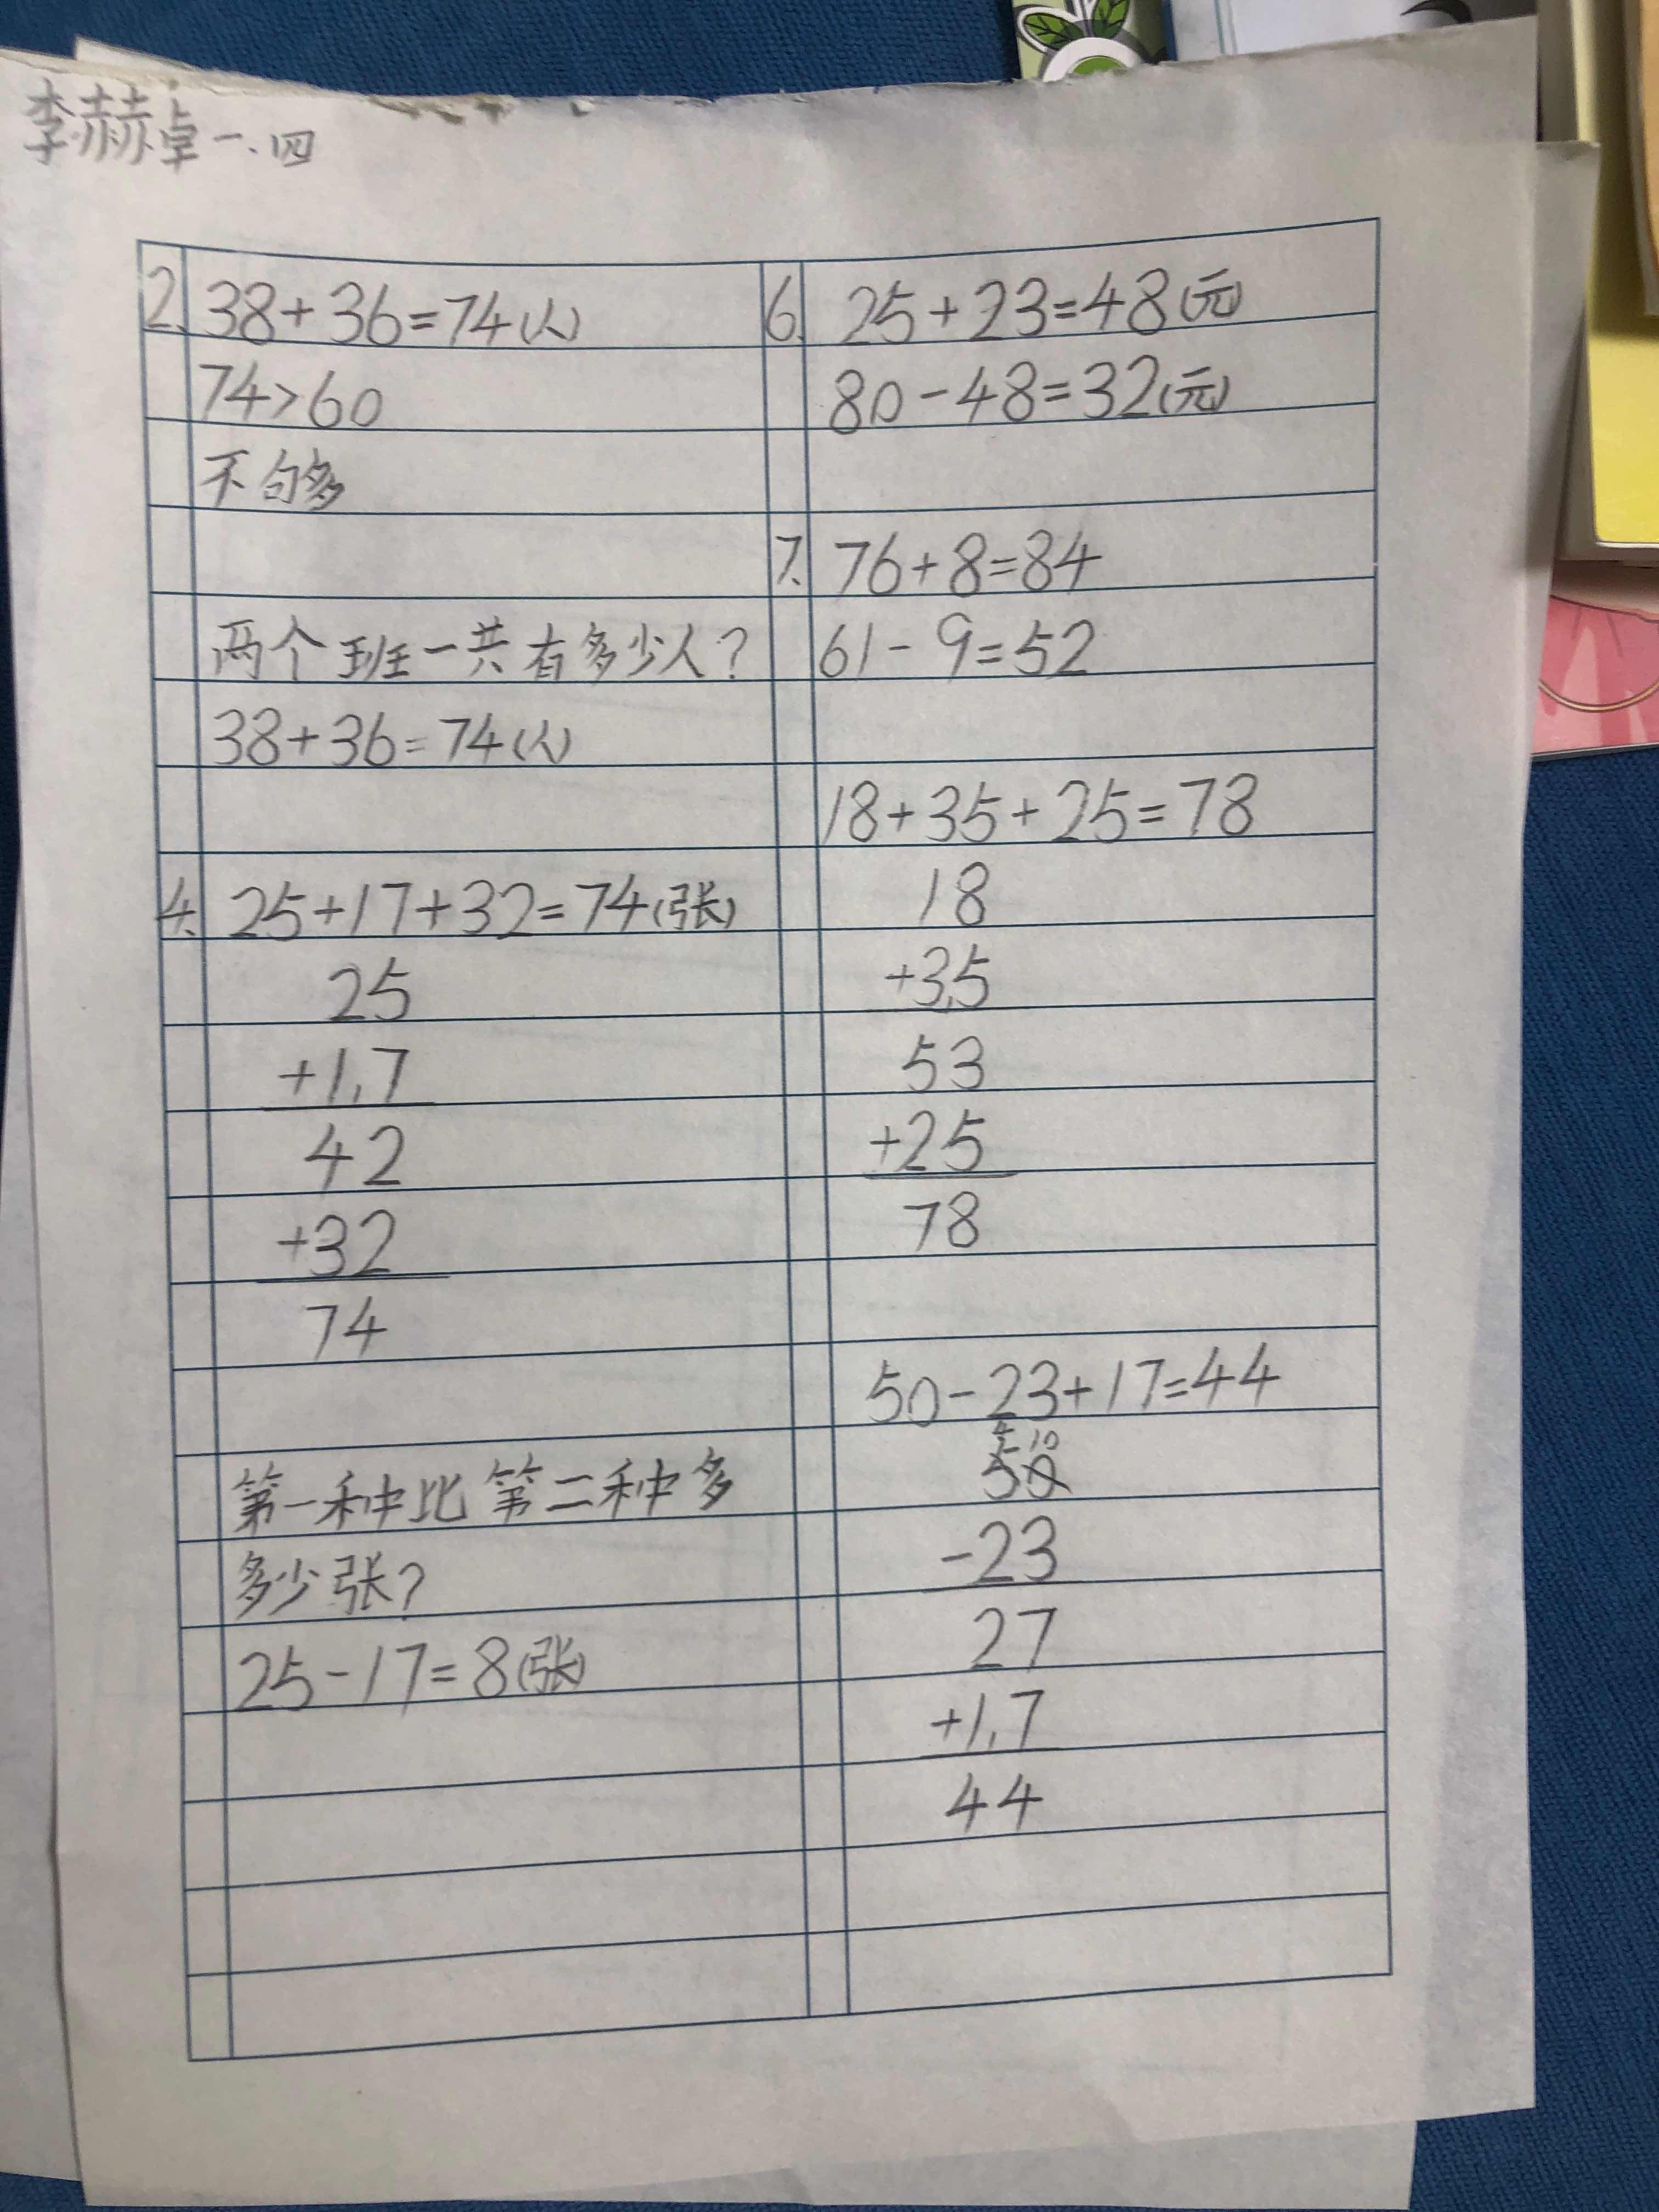 李赫卓一.四
2. 38+36=74(人)
74>60
不句多
两个班一共有多少人?
38+36=74(人)
4. 25+17+32=74(张)
25
+1,7
42
+32
74
第一种比第二种多
多少张?
25-17=8(张)
6. 25+23=48(元)
80-48=32(元)
7. 76+8=84
61-9=52
18+35+25=78
18
+3,5
53
+25
78
50-23+17=44
4 10
50
-23
27
+1,7
44